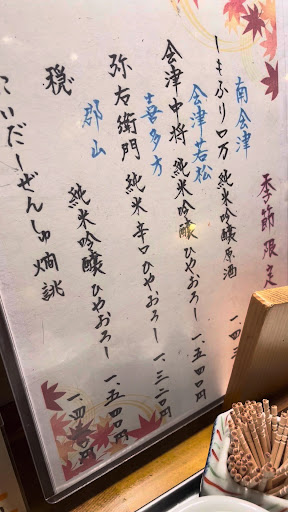 季節限定
南会津
しぼり口万 純米吟醸原酒 一、四三
会津若松
会津中将 純米吟醸ひやおろし 一、五四〇円
喜多方
弥右衛門 純米辛口ひやおろし 一、三二〇円
郡山
穏 純米吟醸ひやおろし 一、四三〇円
にいだしぜんしゅ燗誂